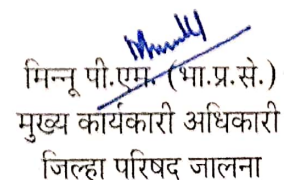 मिन्नू पी.एम. (भा.प्र.से.)
मुख्य कार्यकारी अधिकारी
जिल्हा परिषद जालना